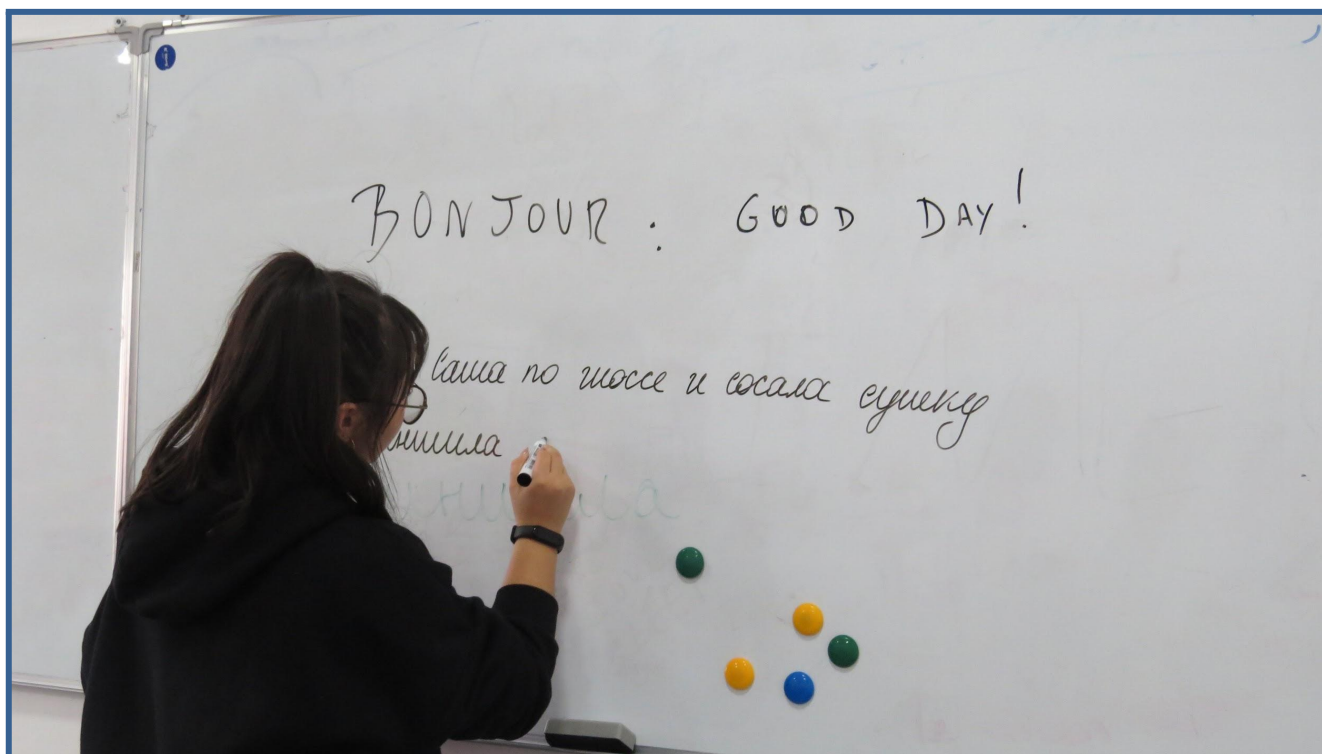 BONJOUR: GOOD DAY!
Саша по шоссе и сосала сушку